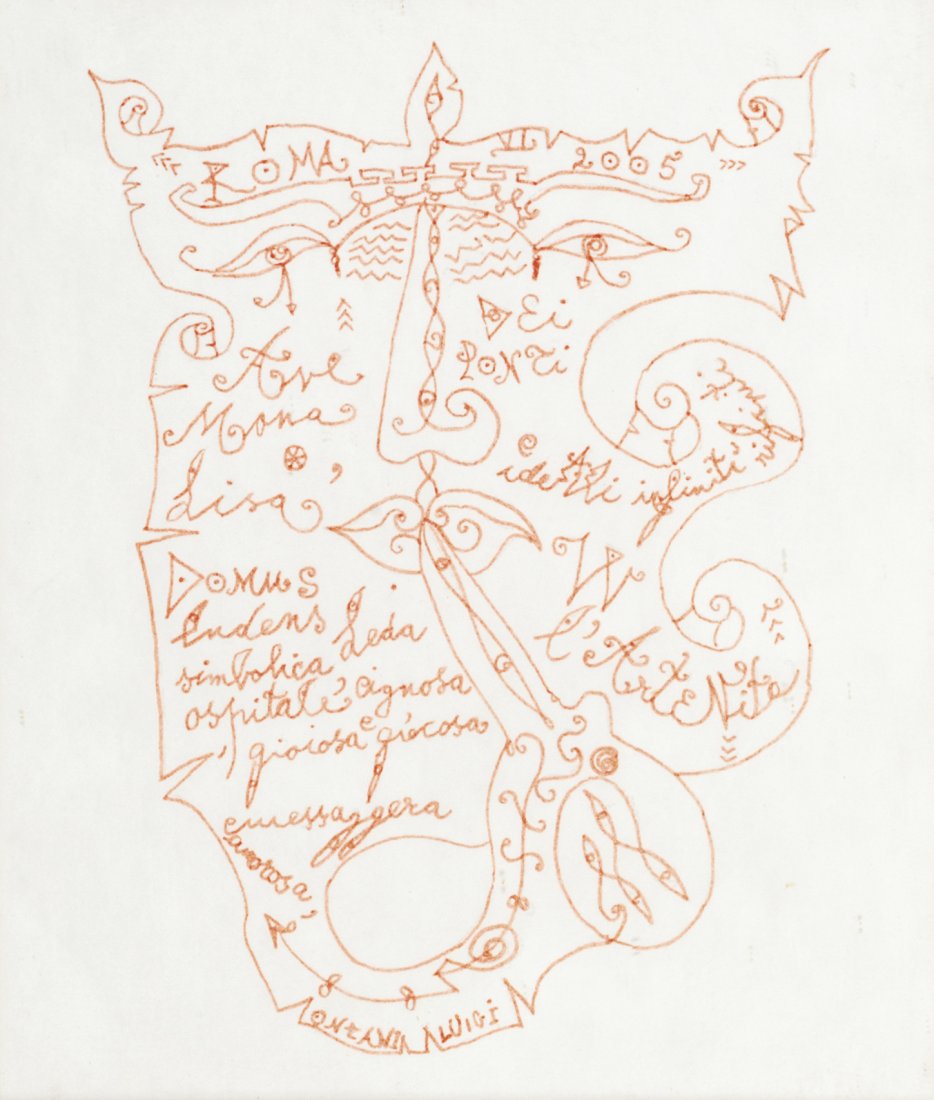 ROMA VI 2005
Ave
Mona
Lisa
DEi
PONTi
e
identi infiniti
W
l'ArtENite
DOMUS
Ludens Leda
simbolica
ospitale cignosa
gioiosa e giocosa
e messaggera
amorosa
ONTANI LUIGI